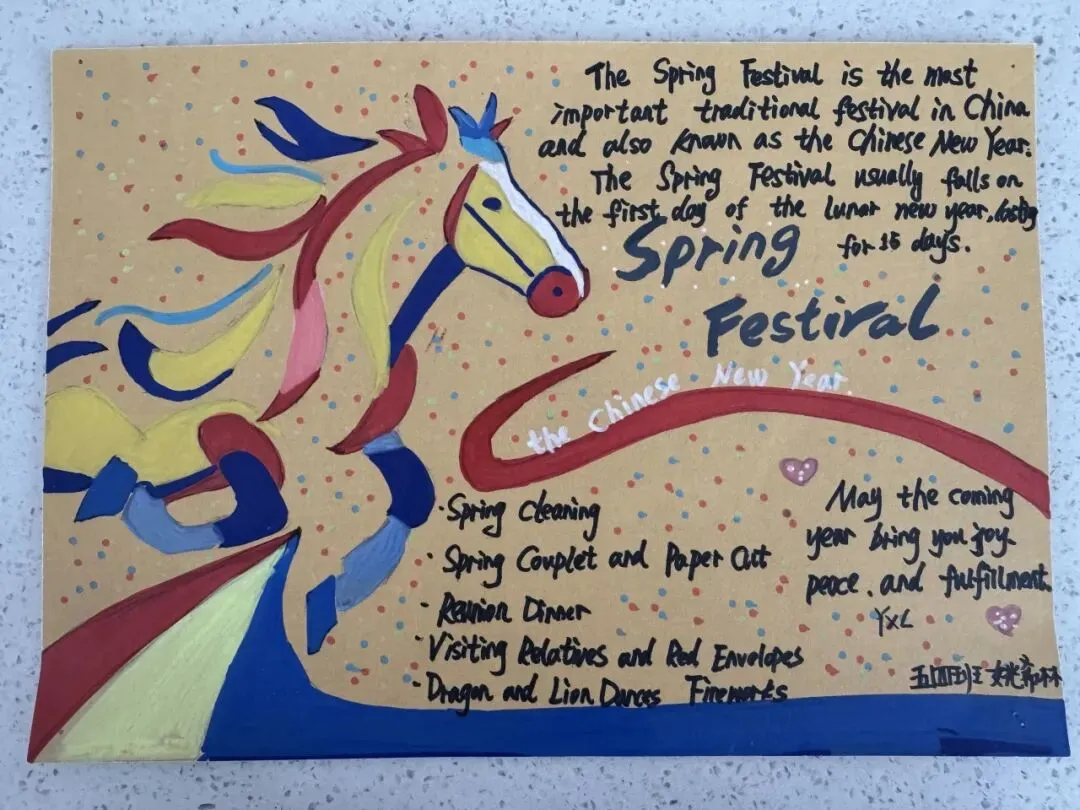 The Spring Festival is the most
important traditional festival in China
and also known as the Chinese New Year.
The Spring Festival usually falls on
the first day of the lunar new year, lasting
for 15 days.
Spring
Festival
the Chinese New Year.
· Spring Cleaning
· Spring Couplet and Paper Cut
· Reunion Dinner
· Visiting Relatives and Red Envelopes
· Dragon and Lion Dances Fireworks
May the coming
year bring you joy.
peace. and fulfillment.
YXL
五四班 姚
林